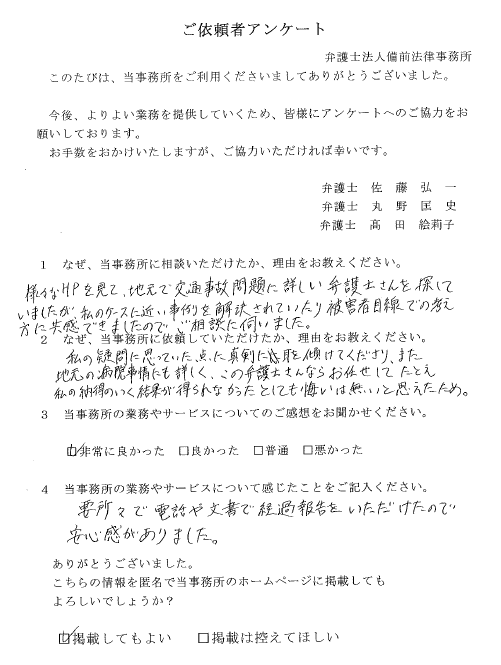 ご依頼者アンケート
弁護士法人備前法律事務所
このたびは、当事務所をご利用くださいましてありがとうございました。
今後、よりよい業務を提供していくため、皆様にアンケートへのご協力をお
願いしております。
お手数をおかけいたしますが、ご協力いただければ幸いです。
弁護士 佐 藤 弘 一
弁護士 丸 野 匡 史
弁護士 髙 田 絵莉子
1 なぜ、当事務所に相談いただけたか、理由をお教えください。
様々なHPを見て、地元で交通事故問題に詳しい弁護士さんを探して
いましたが、私のケースに近い事例を解決されていたり被害者目線での考え
方に共感できましたので、ご相談に伺いました。
2 なぜ、当事務所に依頼していただけたか、理由をお教えください。
私の疑問に思っていた点に真剣に耳を傾けてくださり、また
地元の病院事情にも詳しく、この弁護士さんならお任せして たとえ
私の納得のいく結果が得られなかったとしても悔いは無いと思えたため。
3 当事務所の業務やサービスについてのご感想をお聞かせください。
☑非常に良かった □良かった □普通 □悪かった
4 当事務所の業務やサービスについて感じたことをご記入ください。
要所々で電話や文書で経過報告をいただけたので
安心感がありました。
ありがとうございました。
こちらの情報を匿名で当事務所のホームページに掲載しても
よろしいでしょうか？
☑掲載してもよい □掲載は控えてほしい